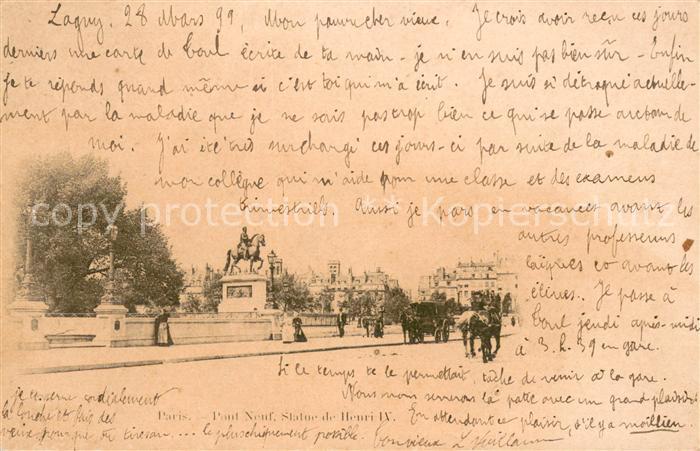 Lagny, 28 Mars 99, Mon pauvre cher vieux. Je crois avoir reçu ces jours
derniers une carte de Toul écrite de ta main - je n'en suis pas bien sûr - Enfin
je te réponds quand même si c'est toi qui m'a écrit. Je suis si détraqué actuelle-
ment par la maladie que je ne sais pas trop bien ce qui se passe autour de
moi. J'ai été très surchargé ces jours-ci par suite de la maladie de
mon collègue qui m'aide pour une classe et des examens
trimestriels. Aussi je pars en vacances avant les
autres professeurs
laïques et avant les
élèves. Je passe à
Toul jeudi après-midi
à 3.h.39 en gare.
Si le temps te le permettait, tâche de venir à la gare.
Nous nous serrerons la patte avec un grand plaisir
En attendant ce plaisir, s'il y a moillien.
je te serre cordialement
la et fais des
vœux pour que tu ... le plus chiquement possible. Ton vieux L Guillaume
Paris. — Pont Neuf, Statue de Henri IV.
copy protection Kopierschutz